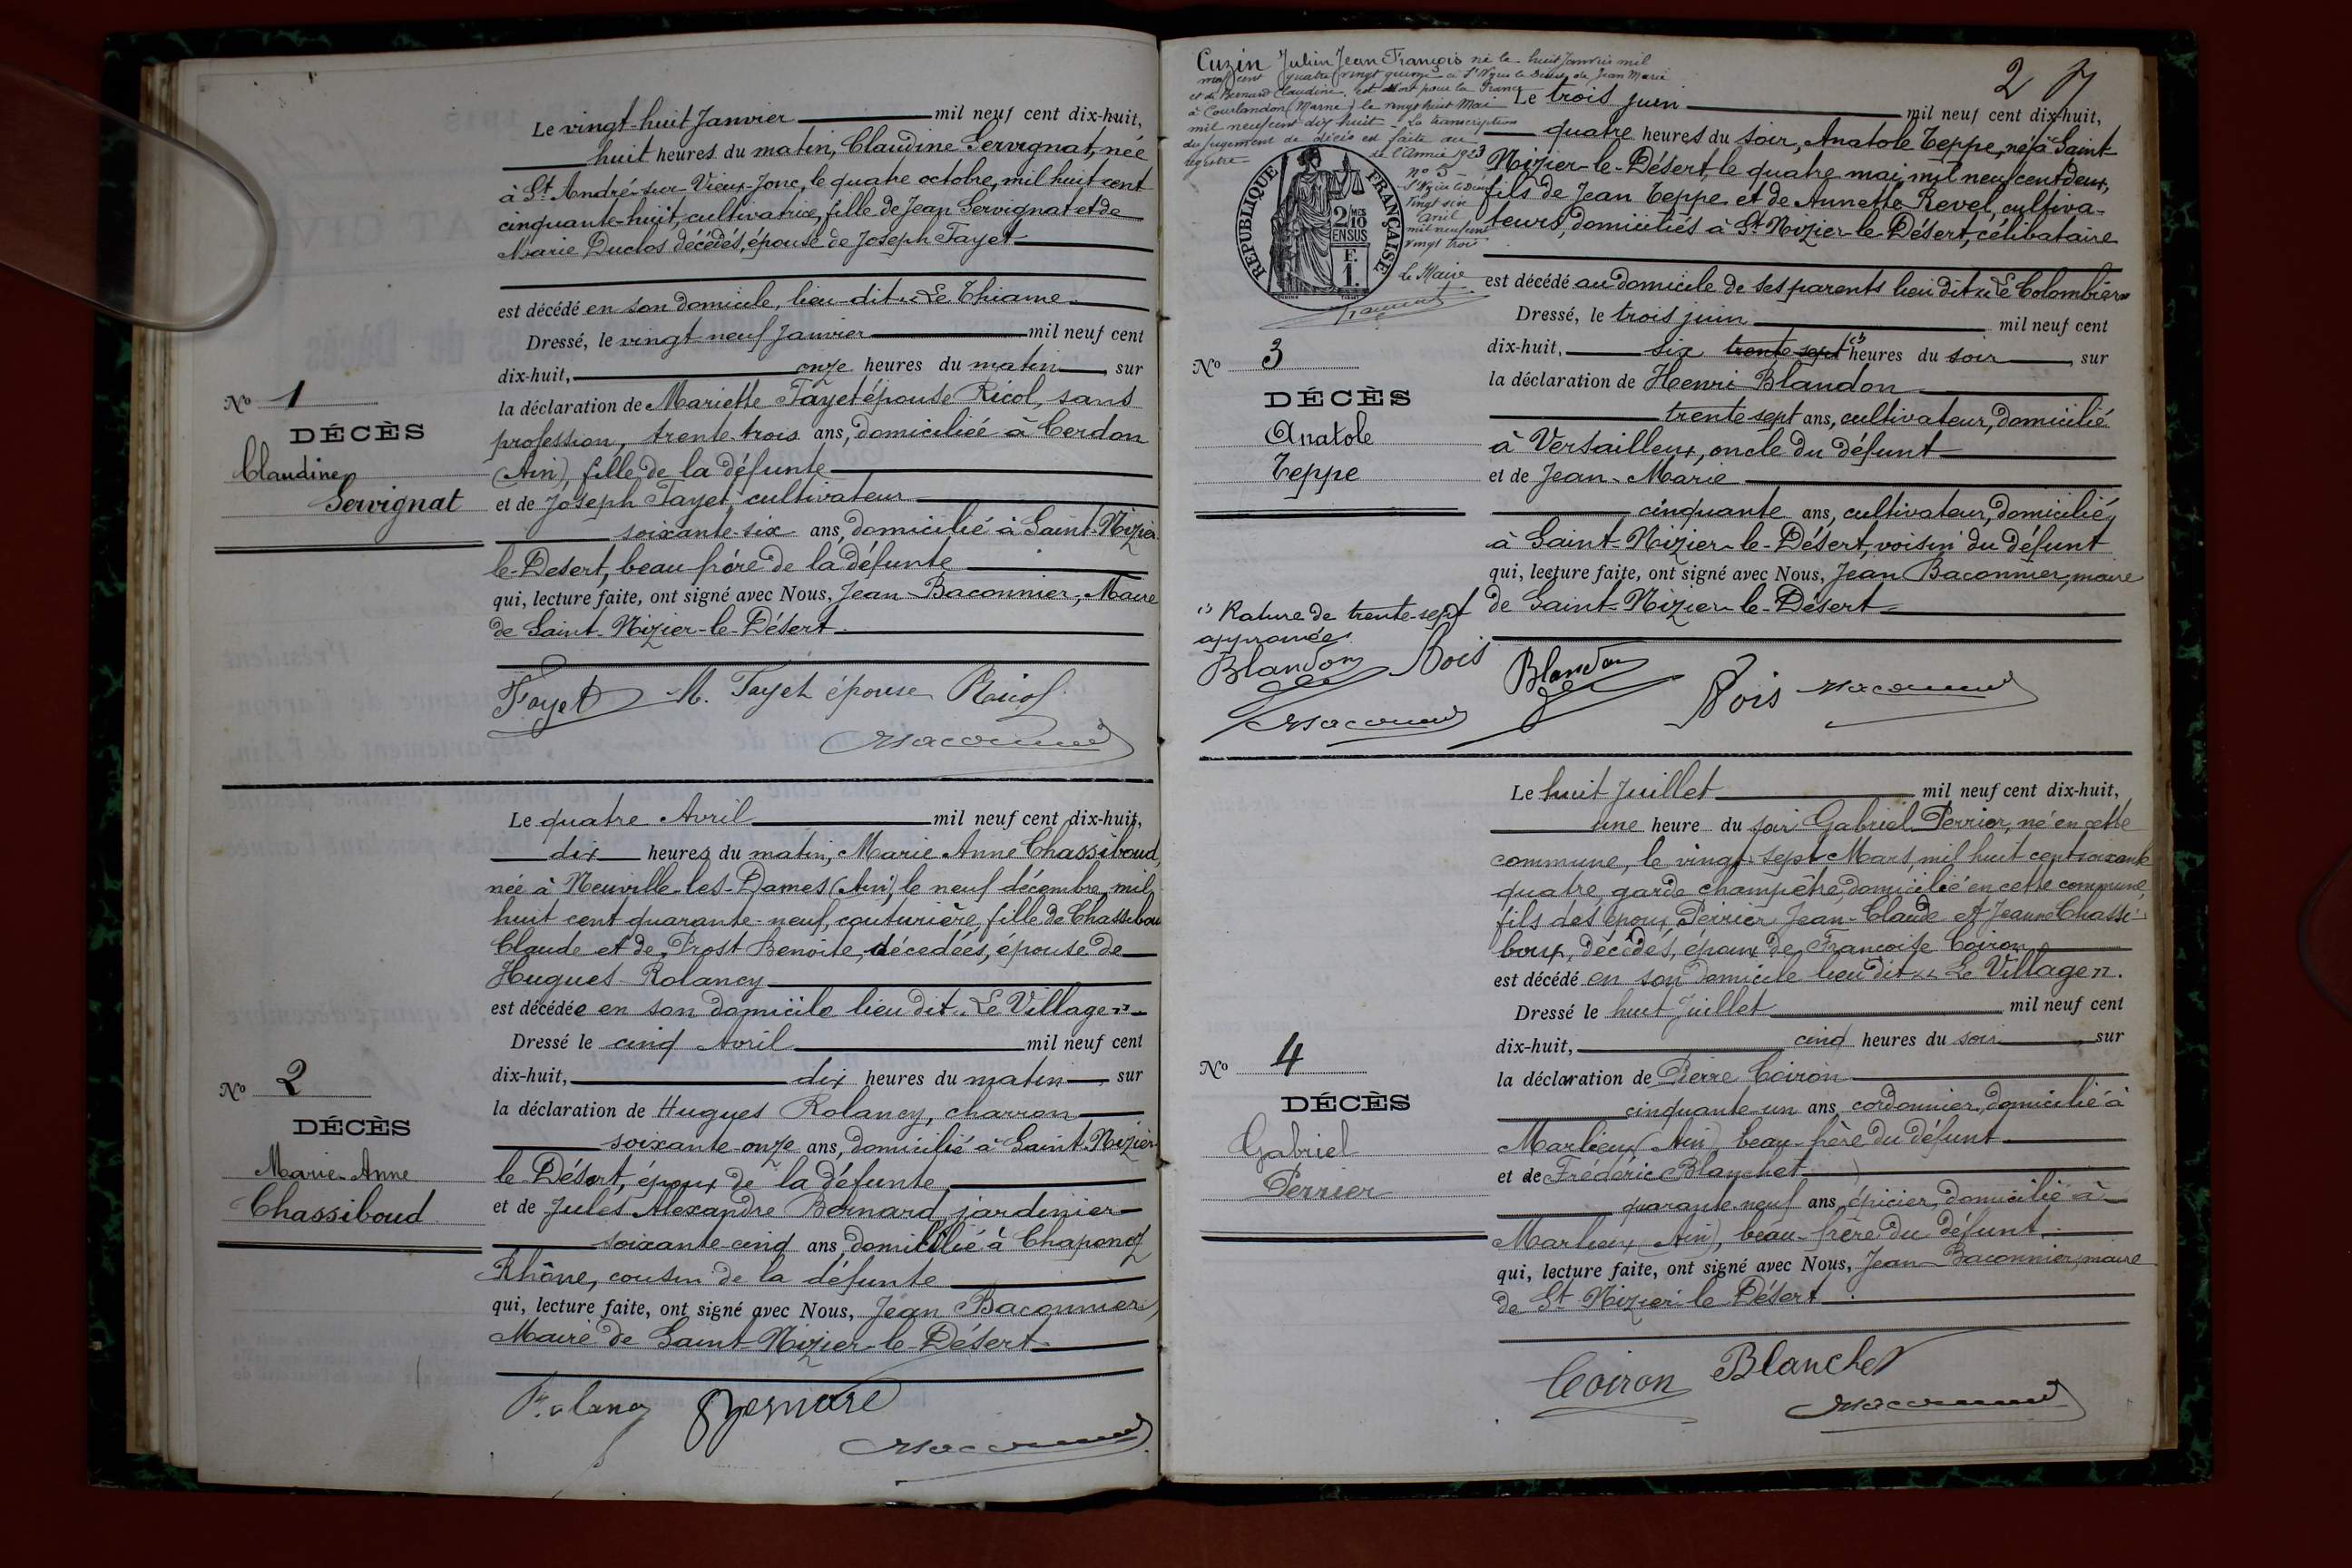 Le vingt-huit Janvier mil neuf cent dix-huit,
huit heures du matin, Claudine Servignat, née
à St André-sur-Vieux-Jonc, le quatre octobre, mil huit cent
cinquante-huit, cultivatrice, fille de Jean Servignat et de
Marie Duclos décédés, épouse de Joseph Fayet
est décédé en son domicile, lieu-dit "Le Thiame
Dressé, le vingt-neuf Janvier mil neuf cent
dix-huit, onze heures du matin, sur
la déclaration de Mariette Fayet épouse Ricol, sans
profession, trente-trois ans, domiciliée à Cerdon
(Ain), fille de la défunte
et de Joseph Fayet, cultivateur
soixante-six ans, domicilié à Saint-Nizier
le-Desert, beau frère de la défunte
qui, lecture faite, ont signé avec Nous, Jean Baconnier, Maire
de Saint-Nizier-le-Désert.
No 1
DÉCÈS
Claudine
Servignat
Fayet M. Fayet épouse Ricol
Le quatre Avril mil neuf cent dix-huit,
dix heures du matin, Marie Anne Chassiboud
née à Neuville-les-Dames (Ain) le neuf décembre mil
huit cent quarante-neuf, couturière, fille de Chassibou
Claude et de Prost Benoite, décédées, épouse de
Hugues Rolancy
est décédée en son domicile lieu dit "Le Village"
Dressé le cinq Avril mil neuf cent
dix-huit, dix heures du matin, sur
la déclaration de Hugues Rolancy, charron
soixante-onze ans, domicilié à Saint-Nizier
le-Désert, époux de la défunte
et de Jules Alexandre Bernard, jardinier
soixante-cinq ans, domicilié à Chaponoz
Rhône, cousin de la défunte
qui, lecture faite, ont signé avec Nous, Jean Baconnier,
Maire de Saint-Nizier-le-Désert
No 2
DÉCÈS
Marie-Anne
Chassiboud
Rolancy Bernard
2
Cuzin Julien Jean François né le huit Janvier mil
huit cent quatre vingt quinze à St Nizier le Désert de Jean Marie
et de Bernard Claudine, est Mort pour la France
à Courlandon (Marne) le vingt huit Mai
mil neuf cent dix huit - La transcription
du jugement de décès est faite au
registre de l'Année 1923
no 5
St Nizier le Désert
vingt six
Avril
mil neuf cent
vingt trois
Le Maire
RÉPUBLIQUE FRANÇAISE
2/10
EN SUS
F.
1.
Le trois juin mil neuf cent dix-huit,
quatre heures du soir, Anatole Teppe, né à Saint-
Nizier-le-Désert, le quatre mai mil neuf cent deux,
fils de Jean Teppe et de Annette Revel, cultiva-
teurs, domiciliés à St Nizier-le-Désert, célibataire
est décédé au domicile de ses parents lieu dit "Le Colombier"
Dressé, le trois juin mil neuf cent
dix-huit, six trente sept (1) heures du soir, sur
la déclaration de Henri Blandon
trente sept ans, cultivateur, domicilié
à Versailleux, oncle du défunt
et de Jean-Marie
cinquante ans, cultivateur, domicilié,
à Saint-Nizier-le-Désert, voisin du défunt
qui, lecture faite, ont signé avec Nous, Jean Baconnier, maire
de Saint-Nizier-le-Désert
No 3
DÉCÈS
Anatole
Teppe
(1) Rature de trente-sept
approuvée
Blandon Bois
Blandon Bois
Le huit Juillet mil neuf cent dix-huit,
une heure du soir Gabriel Perrier, né en cette
commune, le vingt sept Mars, mil huit cent soixante
quatre, garde champêtre, domicilié en cette commune,
fils des époux Perrier Jean-Claude et Jeanne Chassi-
boux, décédés, époux de Françoise Coiron
est décédé en son domicile lieu dit "Le Village".
Dressé le huit Juillet mil neuf cent
dix-huit, cinq heures du soir, sur
la déclaration de Pierre Coiron
cinquante-un ans, cordonnier, domicilié à
Marlieux (Ain) beau-frère du défunt
et de Frédéric Blanchet
quarante-neuf ans, épicier, domicilié à
Marlieux (Ain), beau-frère du défunt.
qui, lecture faite, ont signé avec Nous, Jean Baconnier, maire
de St Nizier le Désert
No 4
DÉCÈS
Gabriel
Perrier
Coiron Blanchet